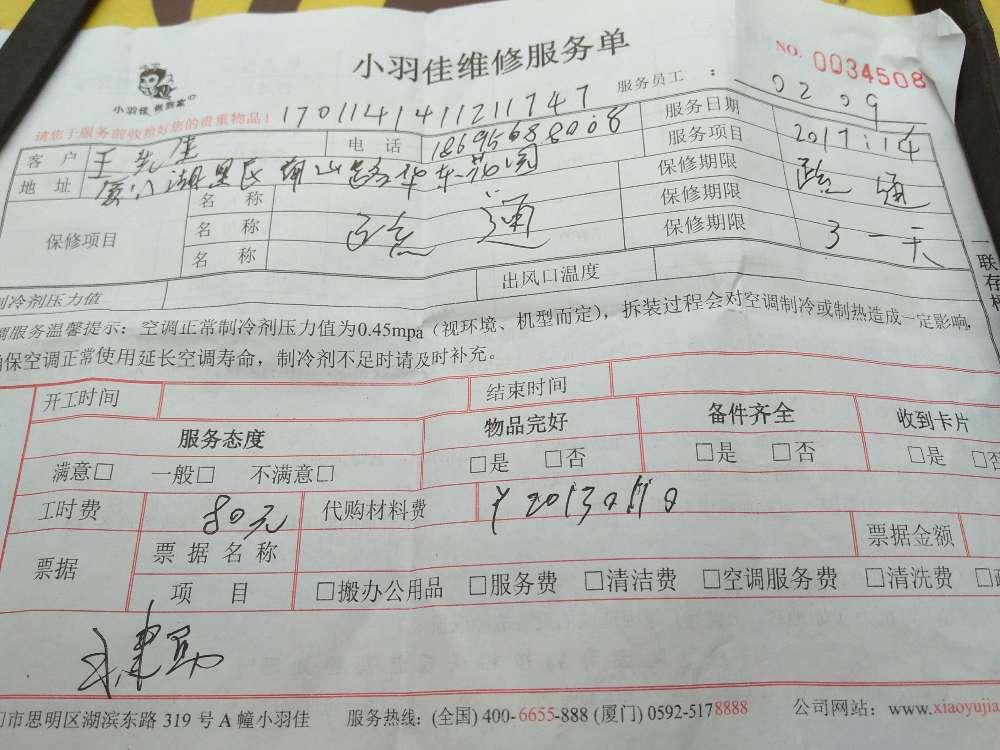 小羽佳维修服务单
NO. 0034508
小羽佳
请您于服务前收拾好您的贵重物品！ 1701141411211747 服务员工： 0209
客户 王先生 电话 18695688008 服务日期 2017:1.14
地址 厦门湖里区 路华东花园 服务项目 疏通
保修项目 名称 保修期限
名称 疏通 保修期限 3一天
名称 保修期限
制冷剂压力值 出风口温度
服务温馨提示：空调正常制冷剂压力值为0.45mpa（视环境、机型而定），拆装过程会对空调制冷或制热造成一定影响，
保空调正常使用延长空调寿命，制冷剂不足时请及时补充。
一联存
开工时间 结束时间
服务态度 物品完好 备件齐全 收到卡片
满意□ 一般□ 不满意□ □是 □否 □是 □否 □是 □否
工时费 80元 代购材料费
票据 票据名称 票据金额
项目 □搬办公用品 □服务费 □清洁费 □空调服务费 □清洗费
市思明区湖滨东路 319 号 A 幢小羽佳 服务热线：(全国) 400-6655-888 (厦门) 0592-5178888 公司网站：www.xiaoyujia